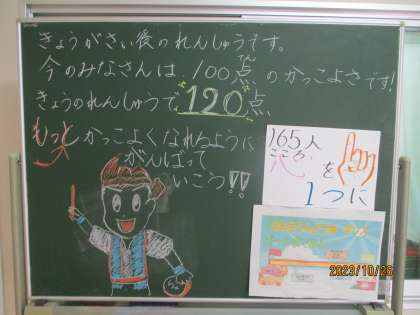 きょうがさい後のれんしゅうです。
今のみなさんは、100点のかっこよさです!
てん
きょうのれんしゅうで、120点
もっとかっこよくなれるように
がんばって
いこう!!
165人
こころ
心を
1つに
2023/10/26